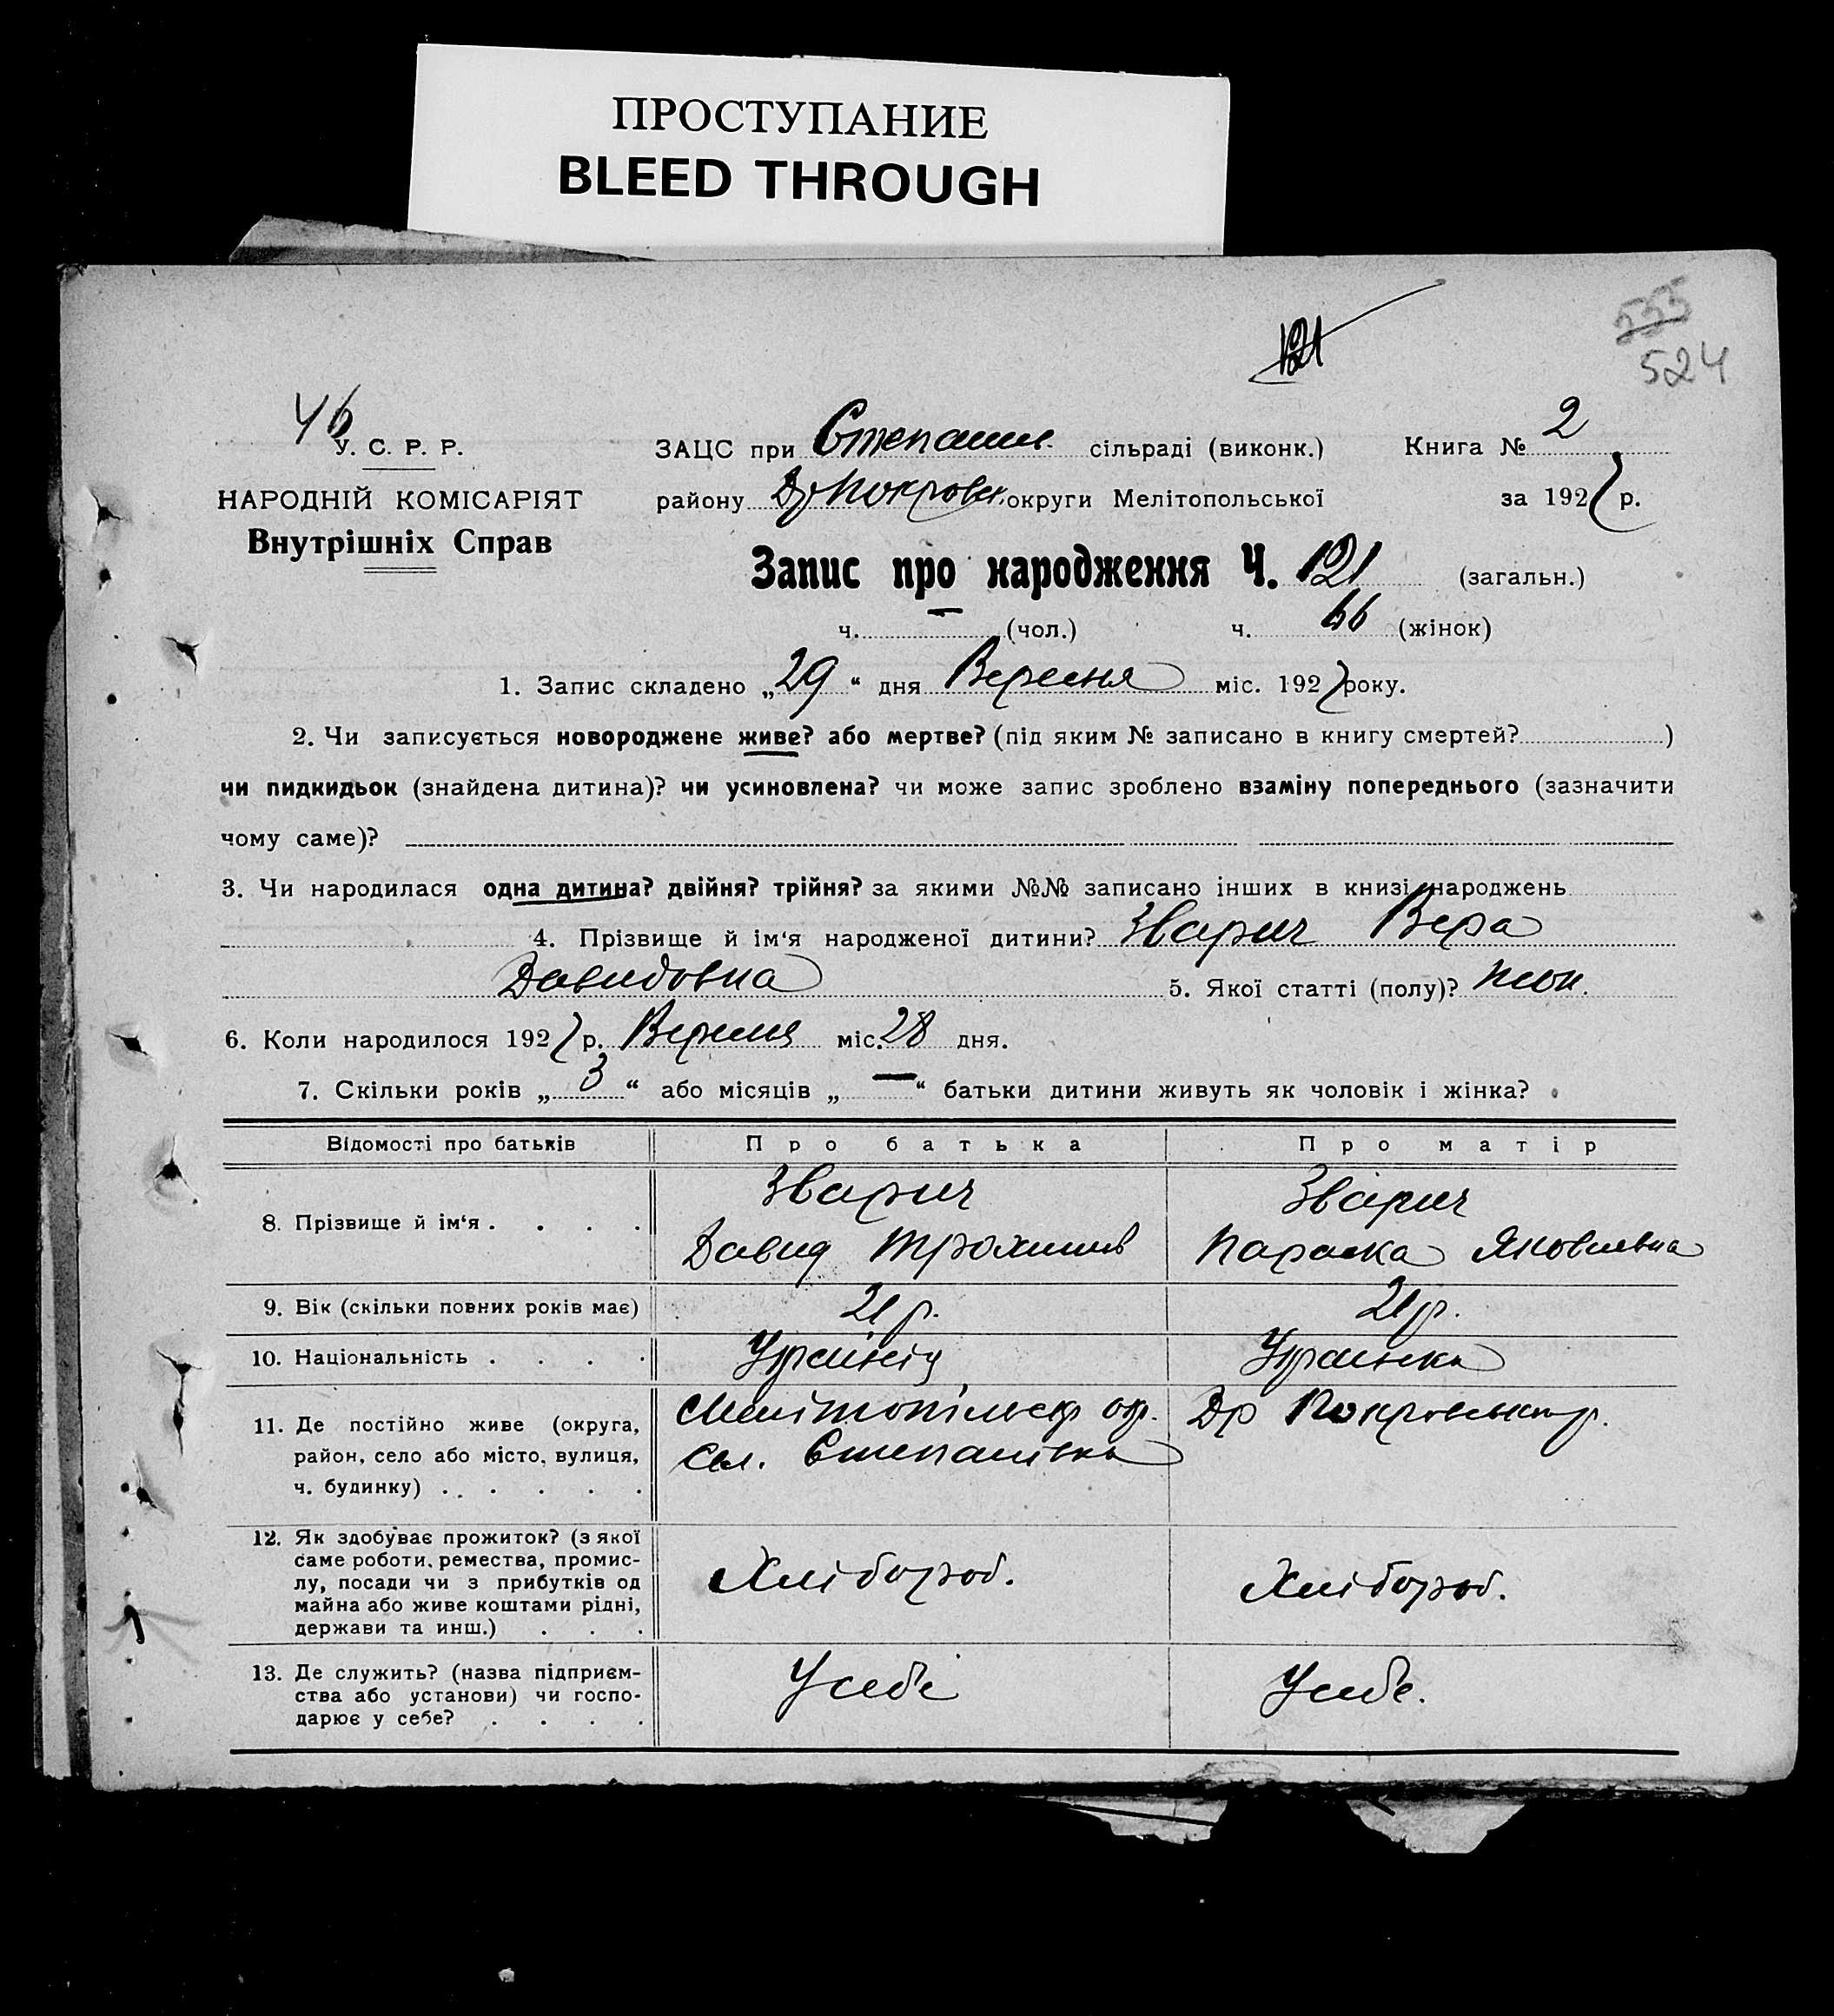 ПРОСТУПАНИЕ
BLEED THROUGH
121
535
524
46
У. С. Р. Р.
НАРОДНІЙ КОМІСАРІЯТ
Внутрішніх Справ
ЗАЦС при Степанив. сільраді (виконк.) Книга № 2
району Др Покровськ. округи Мелітопольської за 1927 р.
Запис про народження Ч. 121 (загальн.)
ч. — (чол.) ч. 66 (жінок)
1. Запис складено „29“ дня Вересня міс. 1927 року.
2. Чи записується новороджене живе? або мертве? (під яким № записано в книгу смертей? )
чи пидкидьок (знайдена дитина)? чи усиновлена? чи може запис зроблено взаміну попереднього (зазначити
чому саме)?
3. Чи народилася одна дитина? двійня? трійня? за якими №№ записано інших в книзі народжень
4. Прізвище й ім‘я народженої дитини? Зварич Вера
Давидовна 5. Якої статті (полу)? жон.
6. Коли народилося 1927 р. Вересня міс. 28 дня.
7. Скільки років „3“ або місяців „—“ батьки дитини живуть як чоловік і жінка?
Відомості про батьків Про батька Про матір
8. Прізвище й ім‘я . . . . Зварич Давид Трохимов Зварич Параска Яковлевна
9. Вік (скільки повних років має) 21 р. 21 р.
10. Національність . . . . Українец Украинка
11. Де постійно живе (округа,
район, село або місто, вулиця,
ч. будинку) . . . . . .
Мелітопільск окр. Др Покровськ р.
сел. Степанівка
12. Як здобуває прожиток? (з якої
саме роботи, ремества, промис-
лу, посади чи з прибутків од
майна або живе коштами рідні,
держави та инш.) . . .
Хлібороб. Хлібороб.
13. Де служить? (назва підприєм-
ства або установи) чи госпо-
дарює у себе? . . . .
У себі У себе.